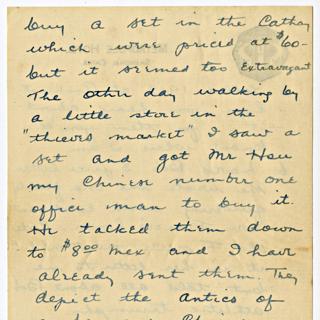 buy a set in the Cathay
which were priced at $60-
but it seemed too Extravagant
The other day walking by
a little store in the
"thieves market" I saw a
set and got Mr Hsu
my Chinese number one
office man to buy it.
He talked them down
to $8.00 Mex and I have
already sent them. They
depict the antics of